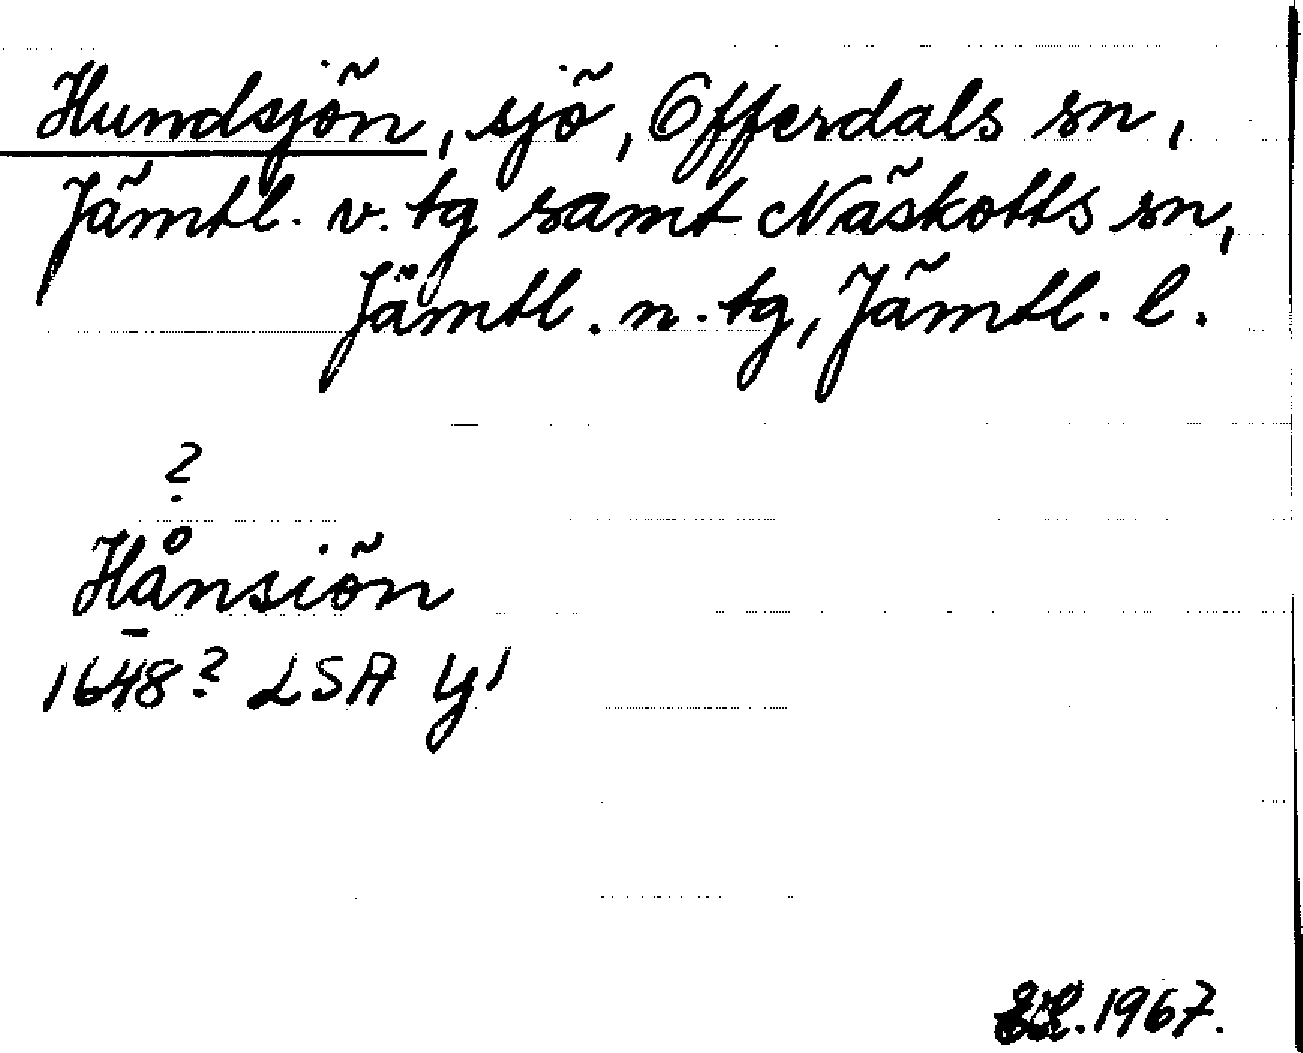 Hundsjön, sjö, Offerdals sn,
Jämtl. v. tg samt Näskotts sn,
Jämtl. n. tg, Jämtl. l.
?
Hånsiön
1648? LSA Y1
1967.